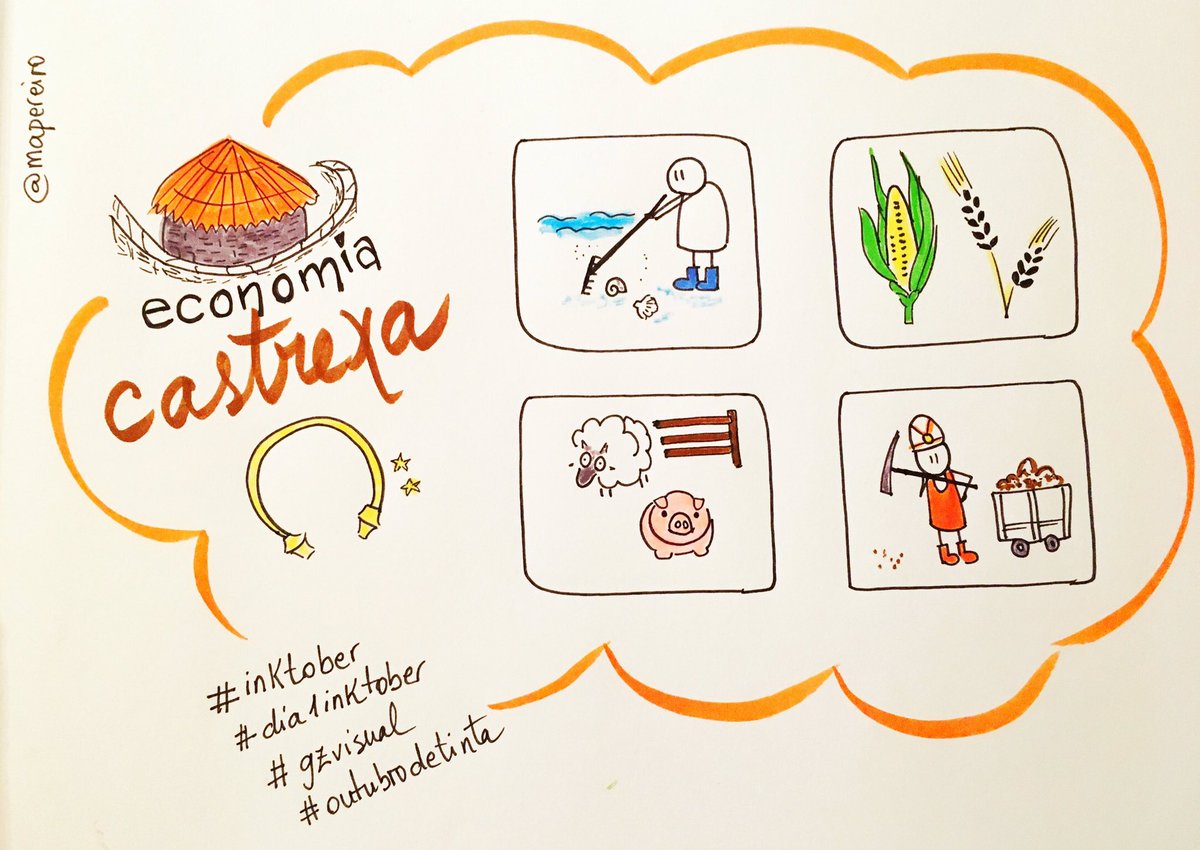 @mapereiro
economía
castrexa
#inktober
#día1inktober
#gzvisual
#outubrodetinta